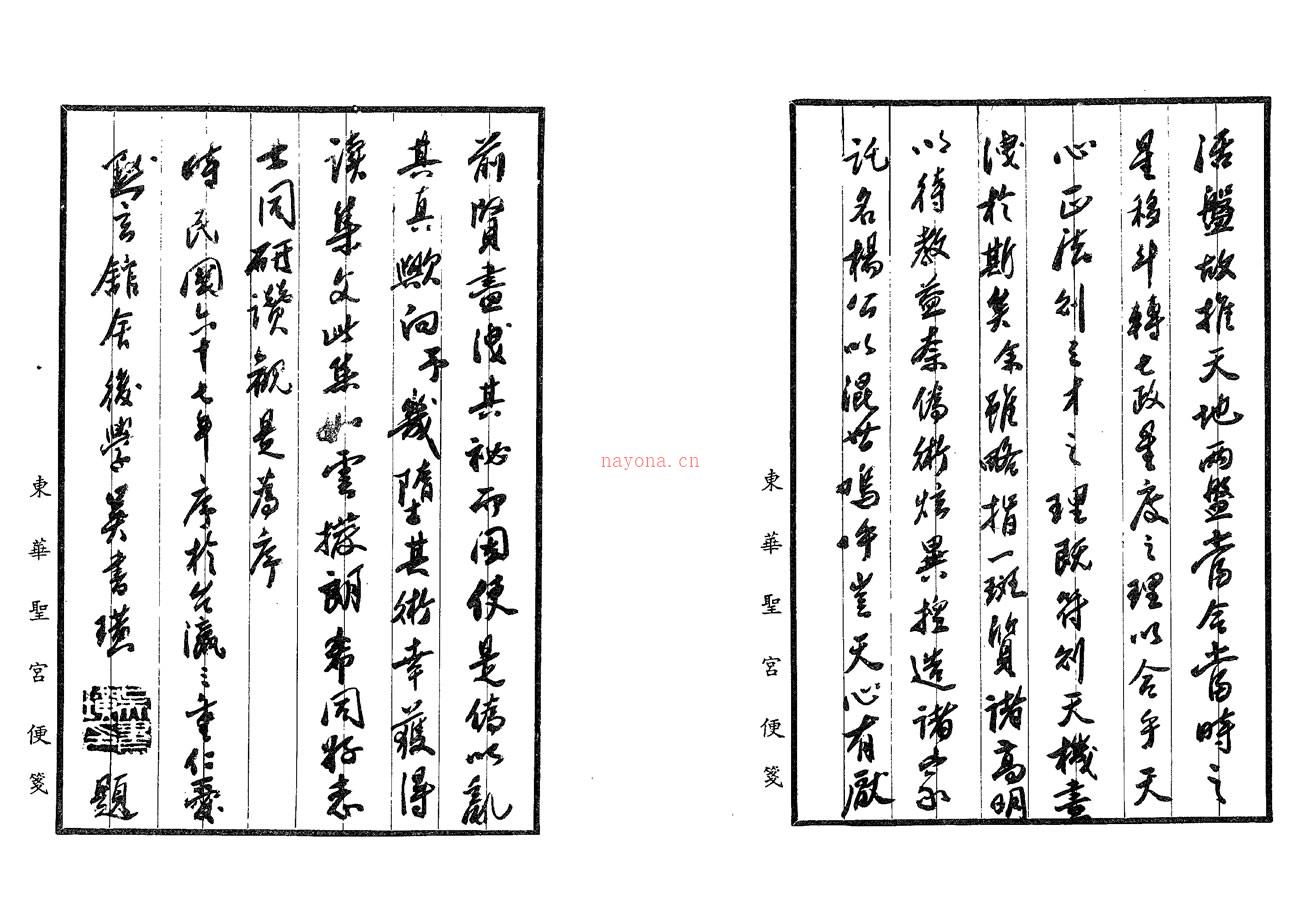 活盤故推天地兩盤當合當時之
星移斗轉七政星度之理以合乎天
心正法剑之才之理既符剑天機盡
洩於斯矣余雖略指一斑質諸高明
以待教益奈偽術炫異擅造諸家
託名楊公以混世嗚呼豈天心有厭
東華聖宮便箋
前賢盡洩其祕而因使是偽以亂
其真歟向予幾墮其術幸獲得
读集文此集如雲撥朗希同好志
士同研讚觀是為序
時民國六十七年序於台瀛三重仁愛
默言舘舍後學吳書璜題
東華聖宮便箋
nayona.cn